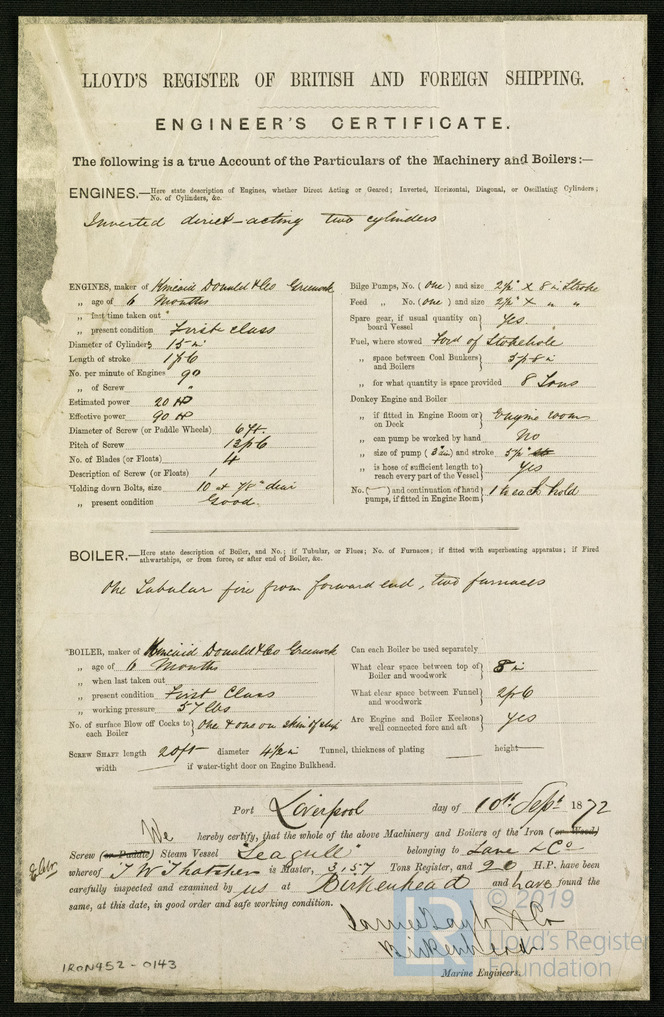 LLOYD'S REGISTER OF BRITISH AND FOREIGN SHIPPING.
ENGINEER'S CERTIFICATE.
The following is a true Account of the Particulars of the Machinery and Boilers:—
ENGINES.—Here state description of Engines, whether Direct Acting or Geared; Inverted, Horizontal, Diagonal, or Oscillating Cylinders;
No. of Cylinders, &c.
Inverted direct-acting two cylinders
ENGINES, maker of Kincaid Donald & Co Greenock
„ age of 6 Months
„ last time taken out
„ present condition First class
Diameter of Cylinders 15 in
Length of stroke 1 ft 6
No. per minute of Engines 90
„ of Screw "
Estimated power 20 HP
Effective power 90 HP
Diameter of Screw (or Paddle Wheels) 6 ft.
Pitch of Screw 12 ft 6
No. of Blades (or Floats) 4
Description of Screw (or Floats) 1
Holding down Bolts, size 10 at 7/8" diar
„ present condition Good.
Bilge Pumps, No. (One) and size 2½" X 8 in Stroke
Feed „ No. (One) and size 2½" X " "
Spare gear, if usual quantity on board Vessel } Yes.
Fuel, where stowed Ford of Stokehole
„ space between Coal Bunkers and Boilers } 5 ft 8 in
„ for what quantity is space provided 8 Tons
Donkey Engine and Boiler
„ if fitted in Engine Room or on Deck } Engine room
„ can pump be worked by hand No
„ size of pump (3 in) and stroke
„ is hose of sufficient length to reach every part of the Vessel } Yes
No. (—) and continuation of hand pumps, if fitted in Engine Room } 1 to each hold
BOILER.—Here state description of Boiler, and No.; if Tubular, or Flues; No. of Furnaces; if fitted with superheating apparatus; if Fired
athwartships, or from force, or after end of Boiler, &c.
One Tubular fire from forward end, two furnaces
BOILER, maker of Kincaid Donald & Co Greenock
„ age of 6 Months
„ when last taken out
„ present condition First Class
„ working pressure 57 lbs
No. of surface Blow off Cocks to each Boiler } One & one on skin of ship
Can each Boiler be used separately
What clear space between top of Boiler and woodwork } 8 in
What clear space between Funnel and woodwork } 2 ft 6
Are Engine and Boiler Keelsons well connected fore and aft } Yes
SCREW SHAFT length 20 ft diameter 4½ in Tunnel, thickness of plating — height —
width — if water-tight door on Engine Bulkhead.
Port Liverpool day of 10th Sept 1872
We hereby certify, that the whole of the above Machinery and Boilers of the Iron (or Wood)
Screw (or Paddle) Steam Vessel "Seagull" belonging to Lane & Co
whereof J W Thatcher is Master, 3,157 Tons Register, and 20 H.P. have been
carefully inspected and examined by us at Birkenhead and have found the
same, at this date, in good order and safe working condition.
James Taylor & Co
Birkenhead.
Marine Engineers.
IRON452-0143
© 2019
LR
Lloyd's Register
Foundation